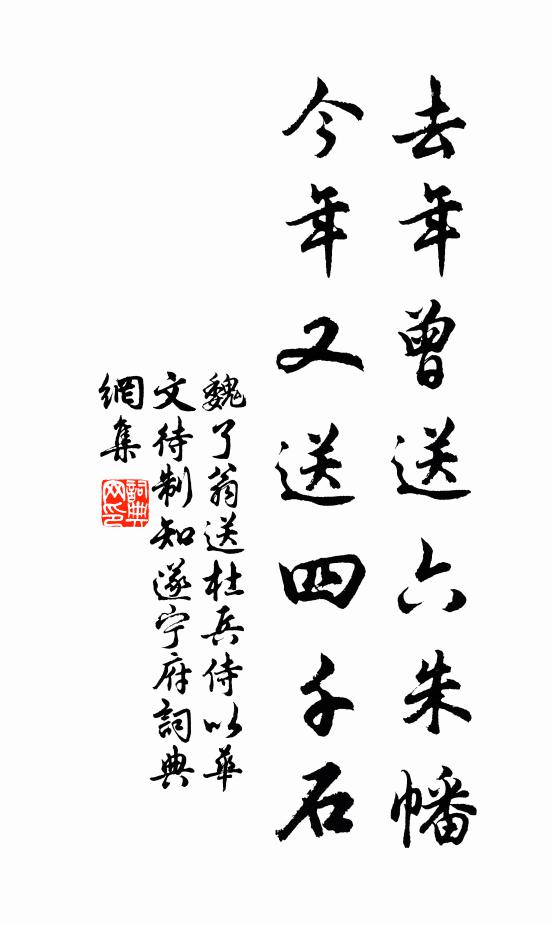 去年曾送六朱幡
今年又送四千石
魏了翁送杜兵侍以華
文待制知遂宁府詞典
網集
詞典
网印